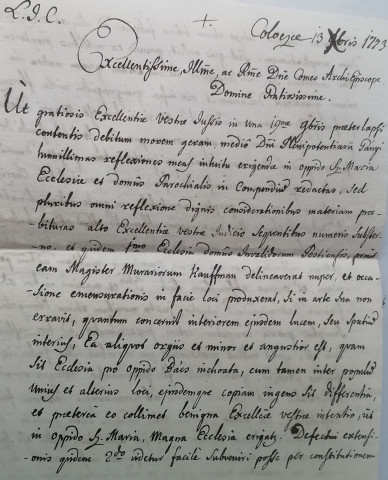 L. I. C.
+
Coloczae 13 Xbris 1773
Excellentissime, Illme, ac Rme Dne Comes Archi Episcope
Domine Gratiosissime.
Ut
gratiosis Excellentiae Vestrae Jussis in una 19nae 9bris praeterlapsi
contentis debitum morem geram medio Dni Plenipotentiarii
humillimas reflexiones meas intuitu erigendae in oppido Sz. Maria
Ecclesiae et domus Parochialis in Compendium redactas, sed
pluribus omni reflexione dignis considerationibus materiam prae-
bituras alto Excellentiae Vestrae Judicio Sequentibus numeris Subster-
no. et quidem 1mo Ecclesia domus Invalidorum Pestiensis, prout
eam Magister Murariorum Kauffman delineaverat nuper, et occa-
sione emensurationis in facie loci produxerat, Si in arte Sua non
erravit, quantum concernit interiorem ejusdem lucem, seu spatium
interius. Ea aliquot orgiis et minor et angustior est, quam
sit Ecclesia pro oppido Bács inchoata, cum tamen inter populum
Unius et alterius loci, ejusdemque copiam ingens sit differentia,
et praeterea eo collimet benigna Excellae Vestrae intentio, ut
in oppido Sz. Maria, Magna Ecclesia erigatur. Defectui extensi-
onis quidem 2do videtur facile Subveniri posse per constitutionem